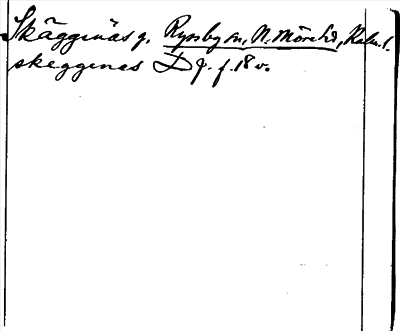 Skäggenäs g. Ryssby sn, N. Möre hd, Kalm. l.
skeggenes D f. 18 v.